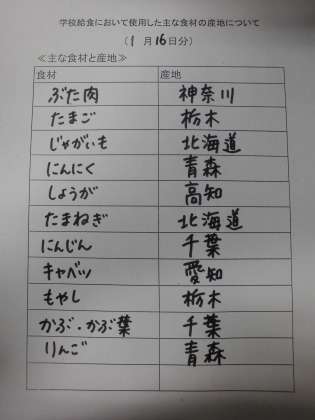 学校給食において使用した主な食材の産地について
(1月16日分)
≪主な食材と産地≫
食材 産地
ぶた肉 神奈川
たまご 栃木
じゃがいも 北海道
にんにく 青森
しょうが 高知
たまねぎ 北海道
にんじん 千葉
キャベツ 愛知
もやし 栃木
かぶ・かぶ葉 千葉
りんご 青森